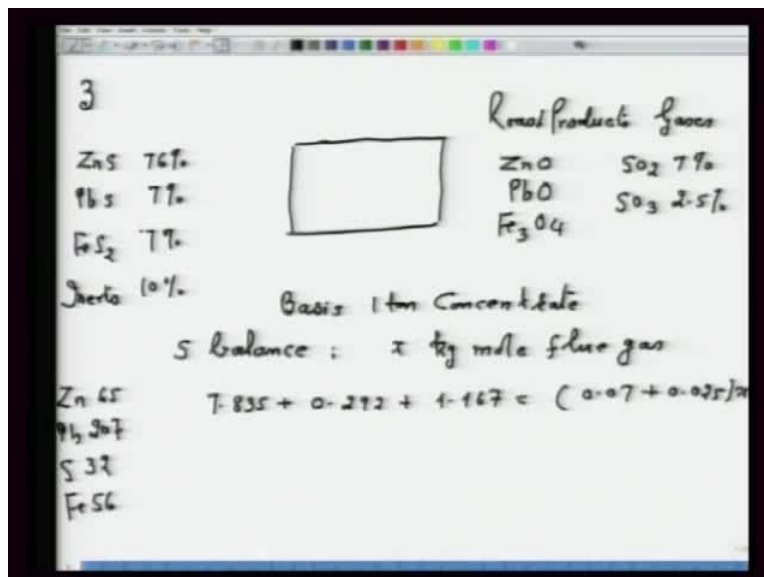 3
Roast Products Gases
ZnS 76%
PbS 7%
FeS2 7%
Inerts 10%
ZnO SO2 7%
PbO SO3 2.5%
Fe3O4
Basis 1 ton Concentrate
S balance : x kg mole flue gas
7.835 + 0.292 + 1.167 = (0.07 + 0.025)x
Zn 65
Pb 207
S 32
Fe 56